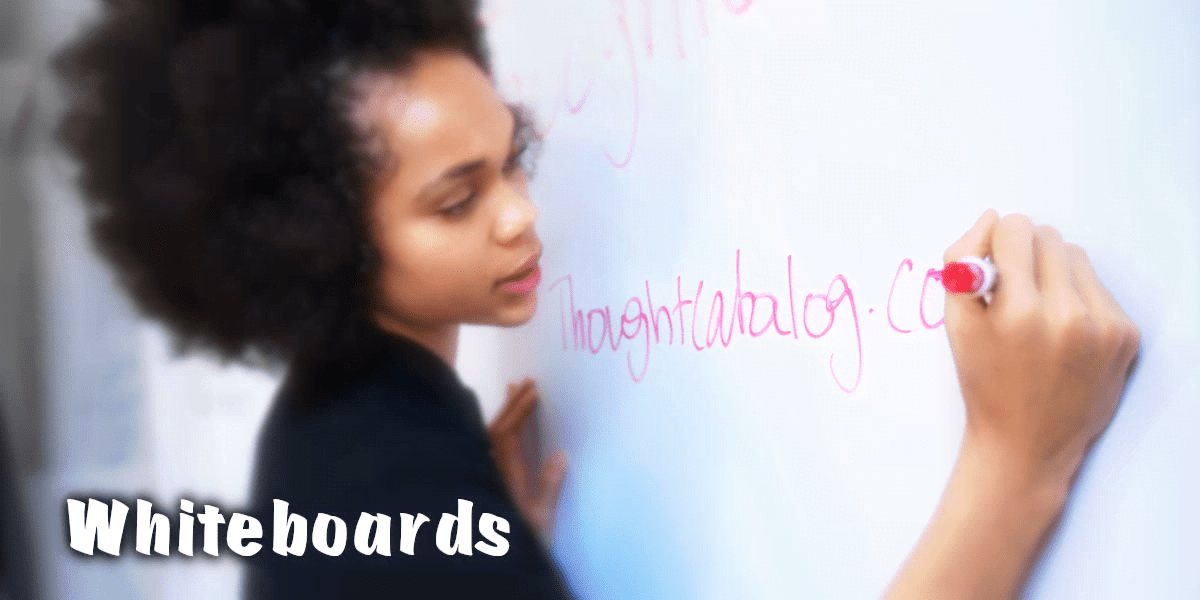 Thoughtcatalog.co
Whiteboards